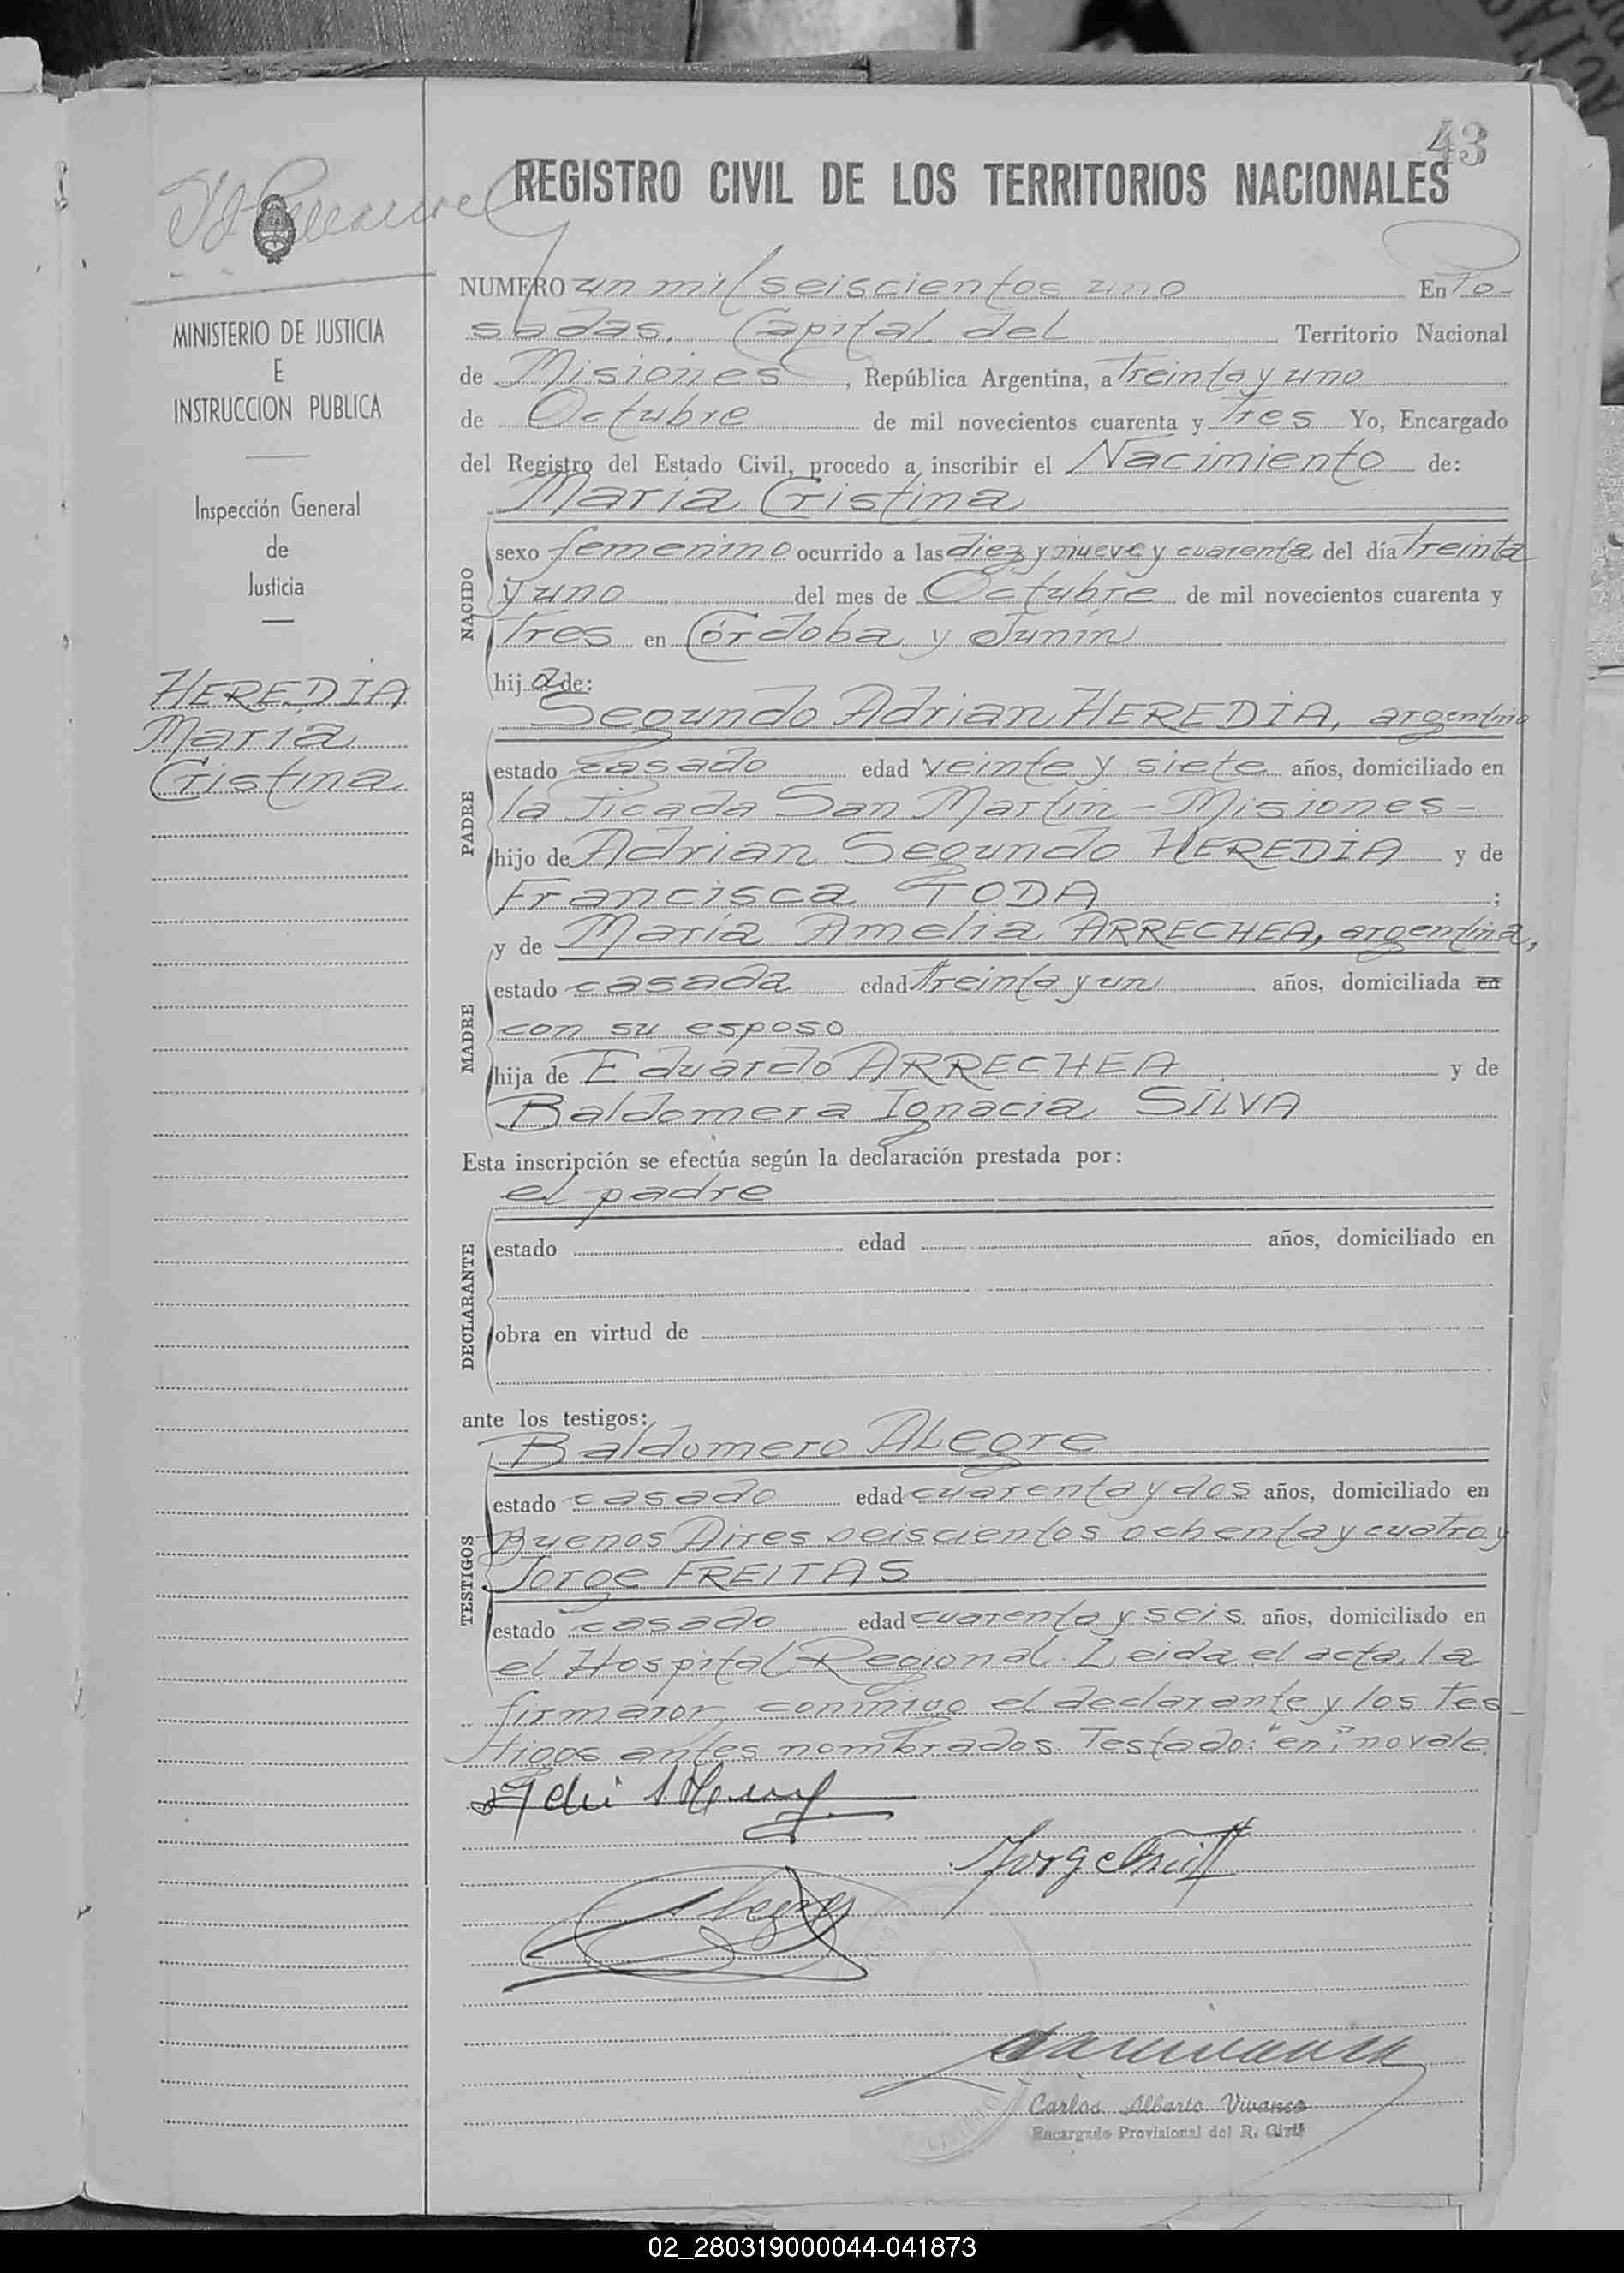 43
REGISTRO CIVIL DE LOS TERRITORIOS NACIONALES
MINISTERIO DE JUSTICIA
E
INSTRUCCION PUBLICA
Inspección General
de
Justicia
HEREDIA
María
Cristina
NUMERO un mil seiscientos uno En Po-
sadas. Capital del Territorio Nacional
de Misiones, República Argentina, a Treinta y uno
de Octubre de mil novecientos cuarenta y Tres Yo, Encargado
del Registro del Estado Civil, procedo a inscribir el Nacimiento de:
María Cristina
NACIDO
sexo femenino ocurrido a las diez y nueve y cuarenta del día Treinta
y uno del mes de Octubre de mil novecientos cuarenta y
Tres en Córdoba y Junín
hija de:
Segundo Adrian HEREDIA, argentino
PADRE
estado casado edad veinte y siete años, domiciliado en
la Picada San Martín - Misiones -
hijo de Adrian Segundo HEREDIA y de
Francisca TODA ;
y de María Amelia ARRECHEA, argentina,
MADRE
estado casada edad Treinta y un años, domiciliada en
con su esposo
hija de Eduardo ARRECHEA y de
Baldomera Ignacia SILVA
Esta inscripción se efectúa según la declaración prestada por:
el padre
DECLARANTE
estado edad años, domiciliado en
obra en virtud de
ante los testigos:
Baldomero ALegre
TESTIGOS
estado casado edad cuarenta y dos años, domiciliado en
Buenos Aires seiscientos ochenta y cuatro y
Jorge FREITAS
estado casado edad cuarenta y seis años, domiciliado en
el Hospital Regional. Leida el acta, la
firmaron conmigo el declarante y los Tes-
tigos antes nombrados. Testado: "en", no vale.
Carlos Alberto Vivanco
Encargado Provisional del R. Civil
02_280319000044-041873